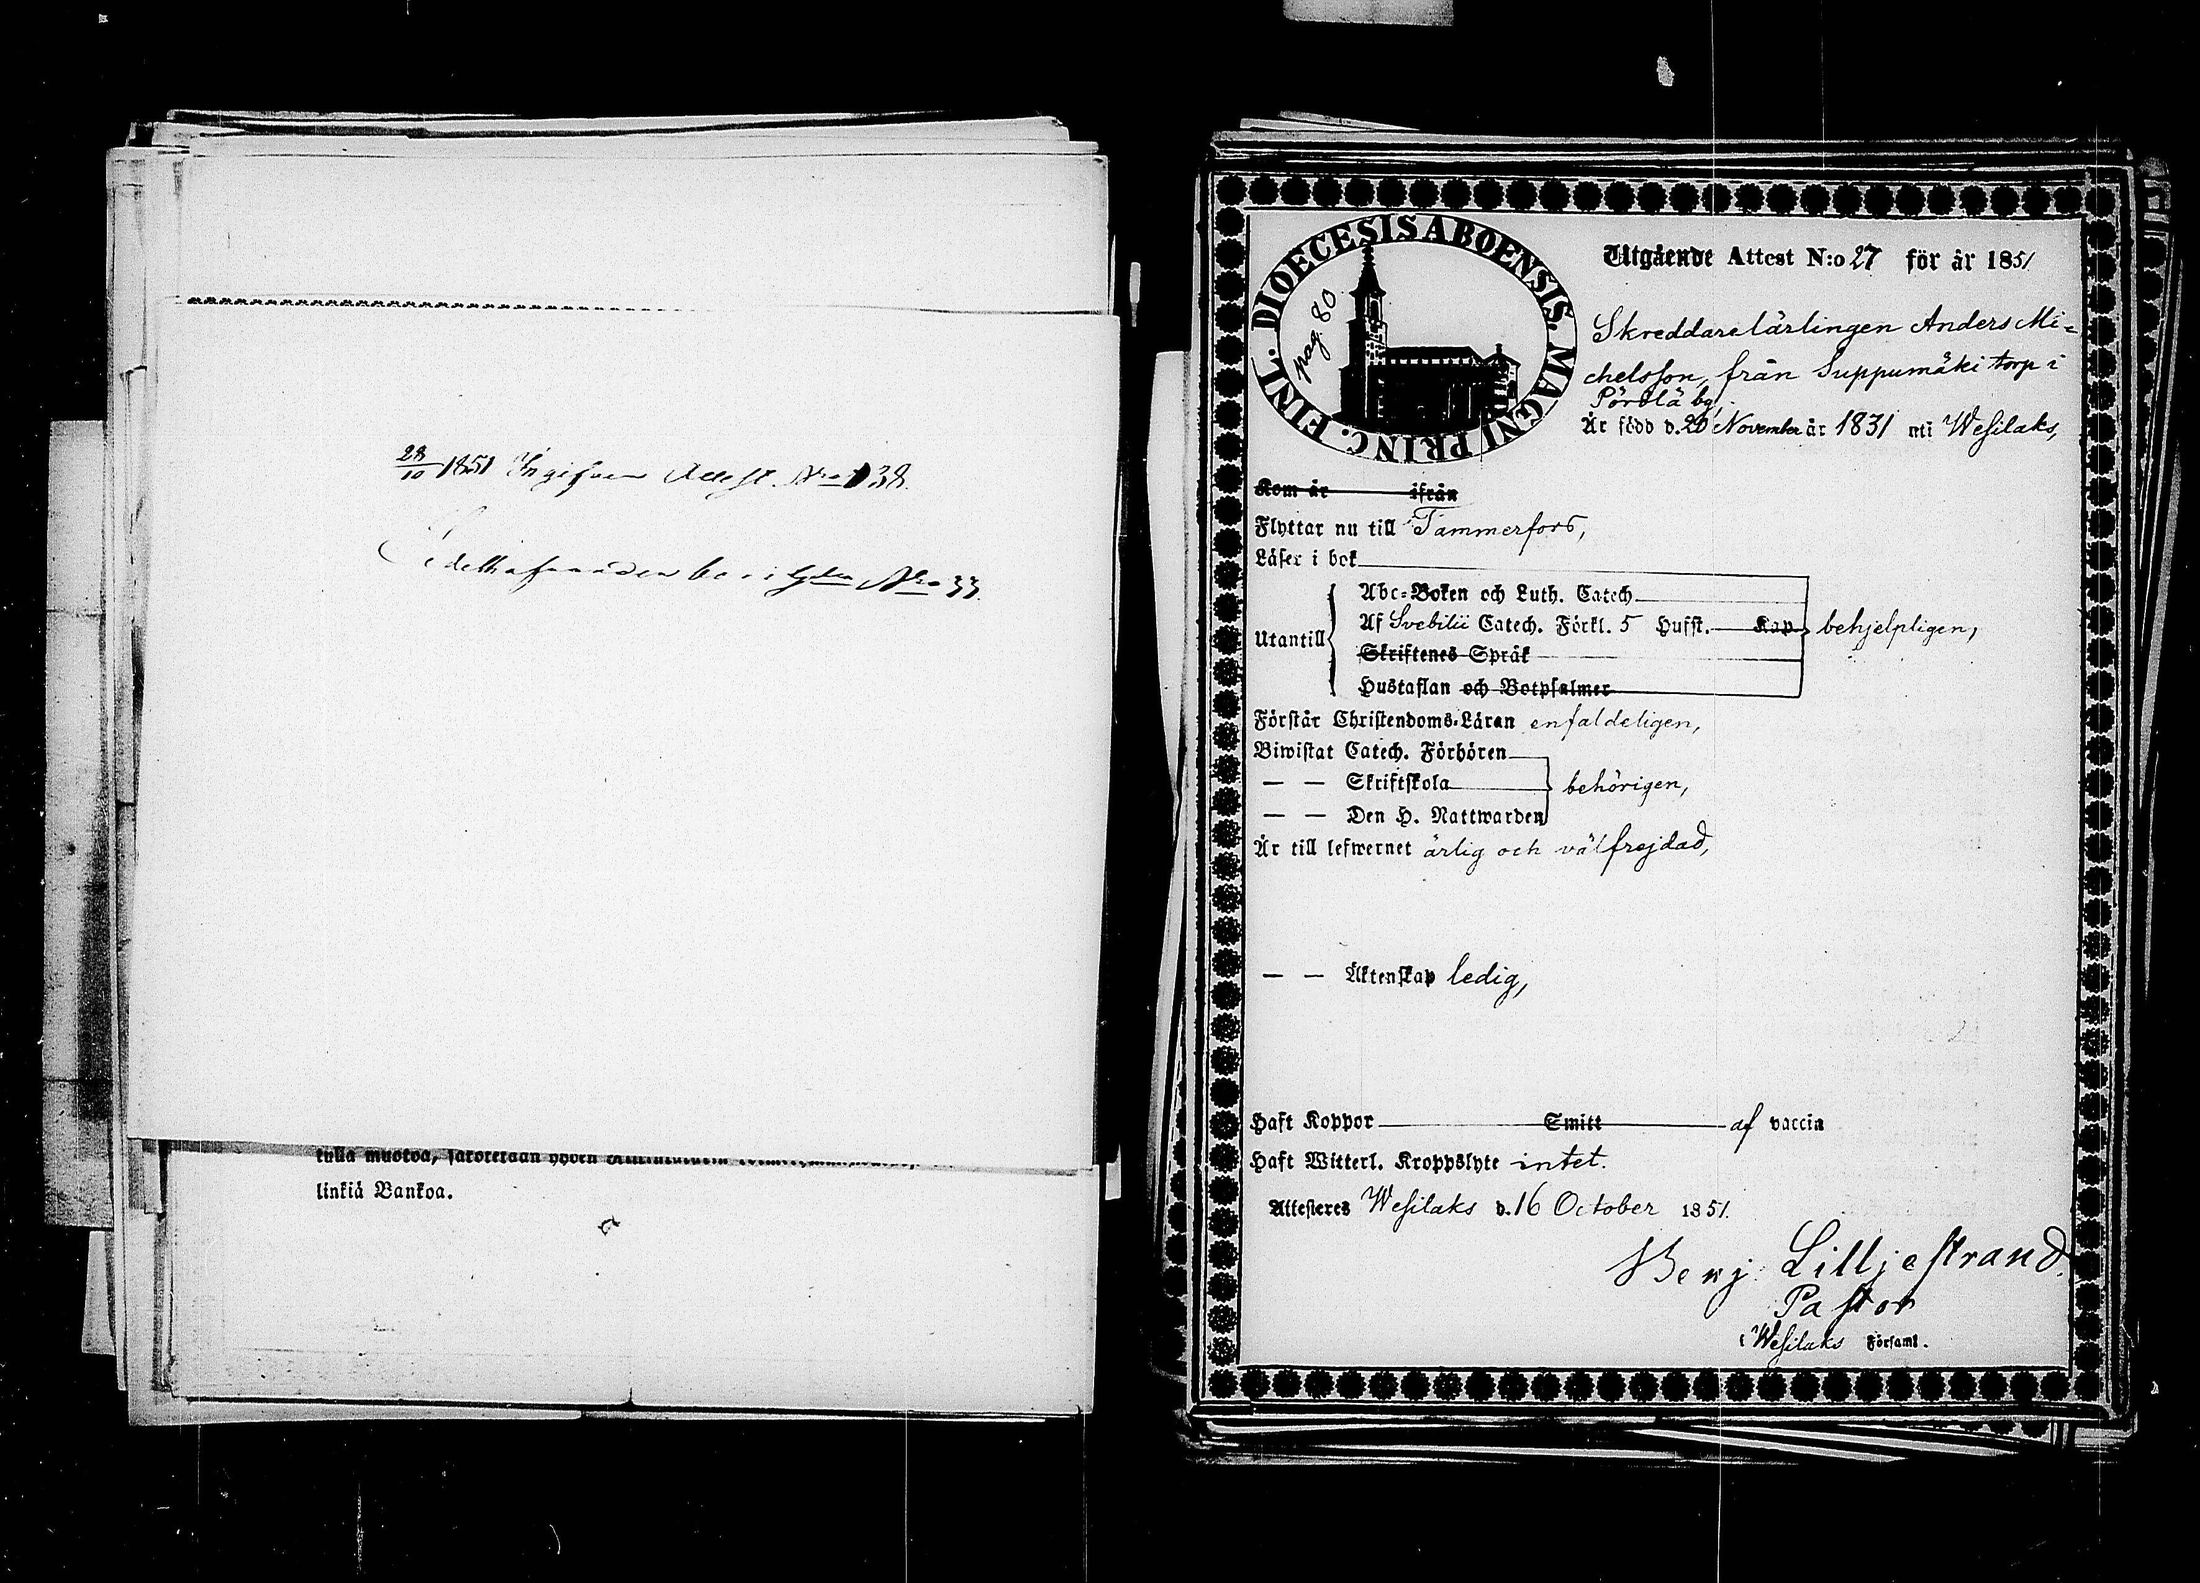 28/10 1851 Ingifven Attest. Nro 138.
Nro 33.
tulla muotoa,
linkiä Bankoa.
DIOECESIS ABOENSIS. MAGNI PRINC. FINL.
pag. 80
Utgående Attest N:o 27 för år 1851
Skreddarelärlingen Anders Mi=
chelsson, från Suppumäki torp i
Pörölä by,
Är född d. 20 November år 1831 uti Wesilaks,
Kom år ifrån
Flyttar nu till Tammerfors,
Läser i bok
Utantill
Abc-Boken och Luth. Catech
Af Svebilii Catech. Förkl. 5 Hufst. Kap behjelpligen,
Skriftenes Språk
Hustaflan och Botpsalmer
Förstår Christendoms-Läran enfaldeligen,
Biwistat Catech. Förhören
— — Skriftskola behörigen,
— — Den H. Nattwarden
Är till lefwernet ärlig och välfrejdad,
— — Äktenskap ledig,
Haft Koppor Smitt af vaccin
Haft Witterl. Kroppslyte intet.
Attesteres Wesilaks d. 16 October 1851.
Benj. Lilljestrand.
Pastor
i Wesilaks Församl.